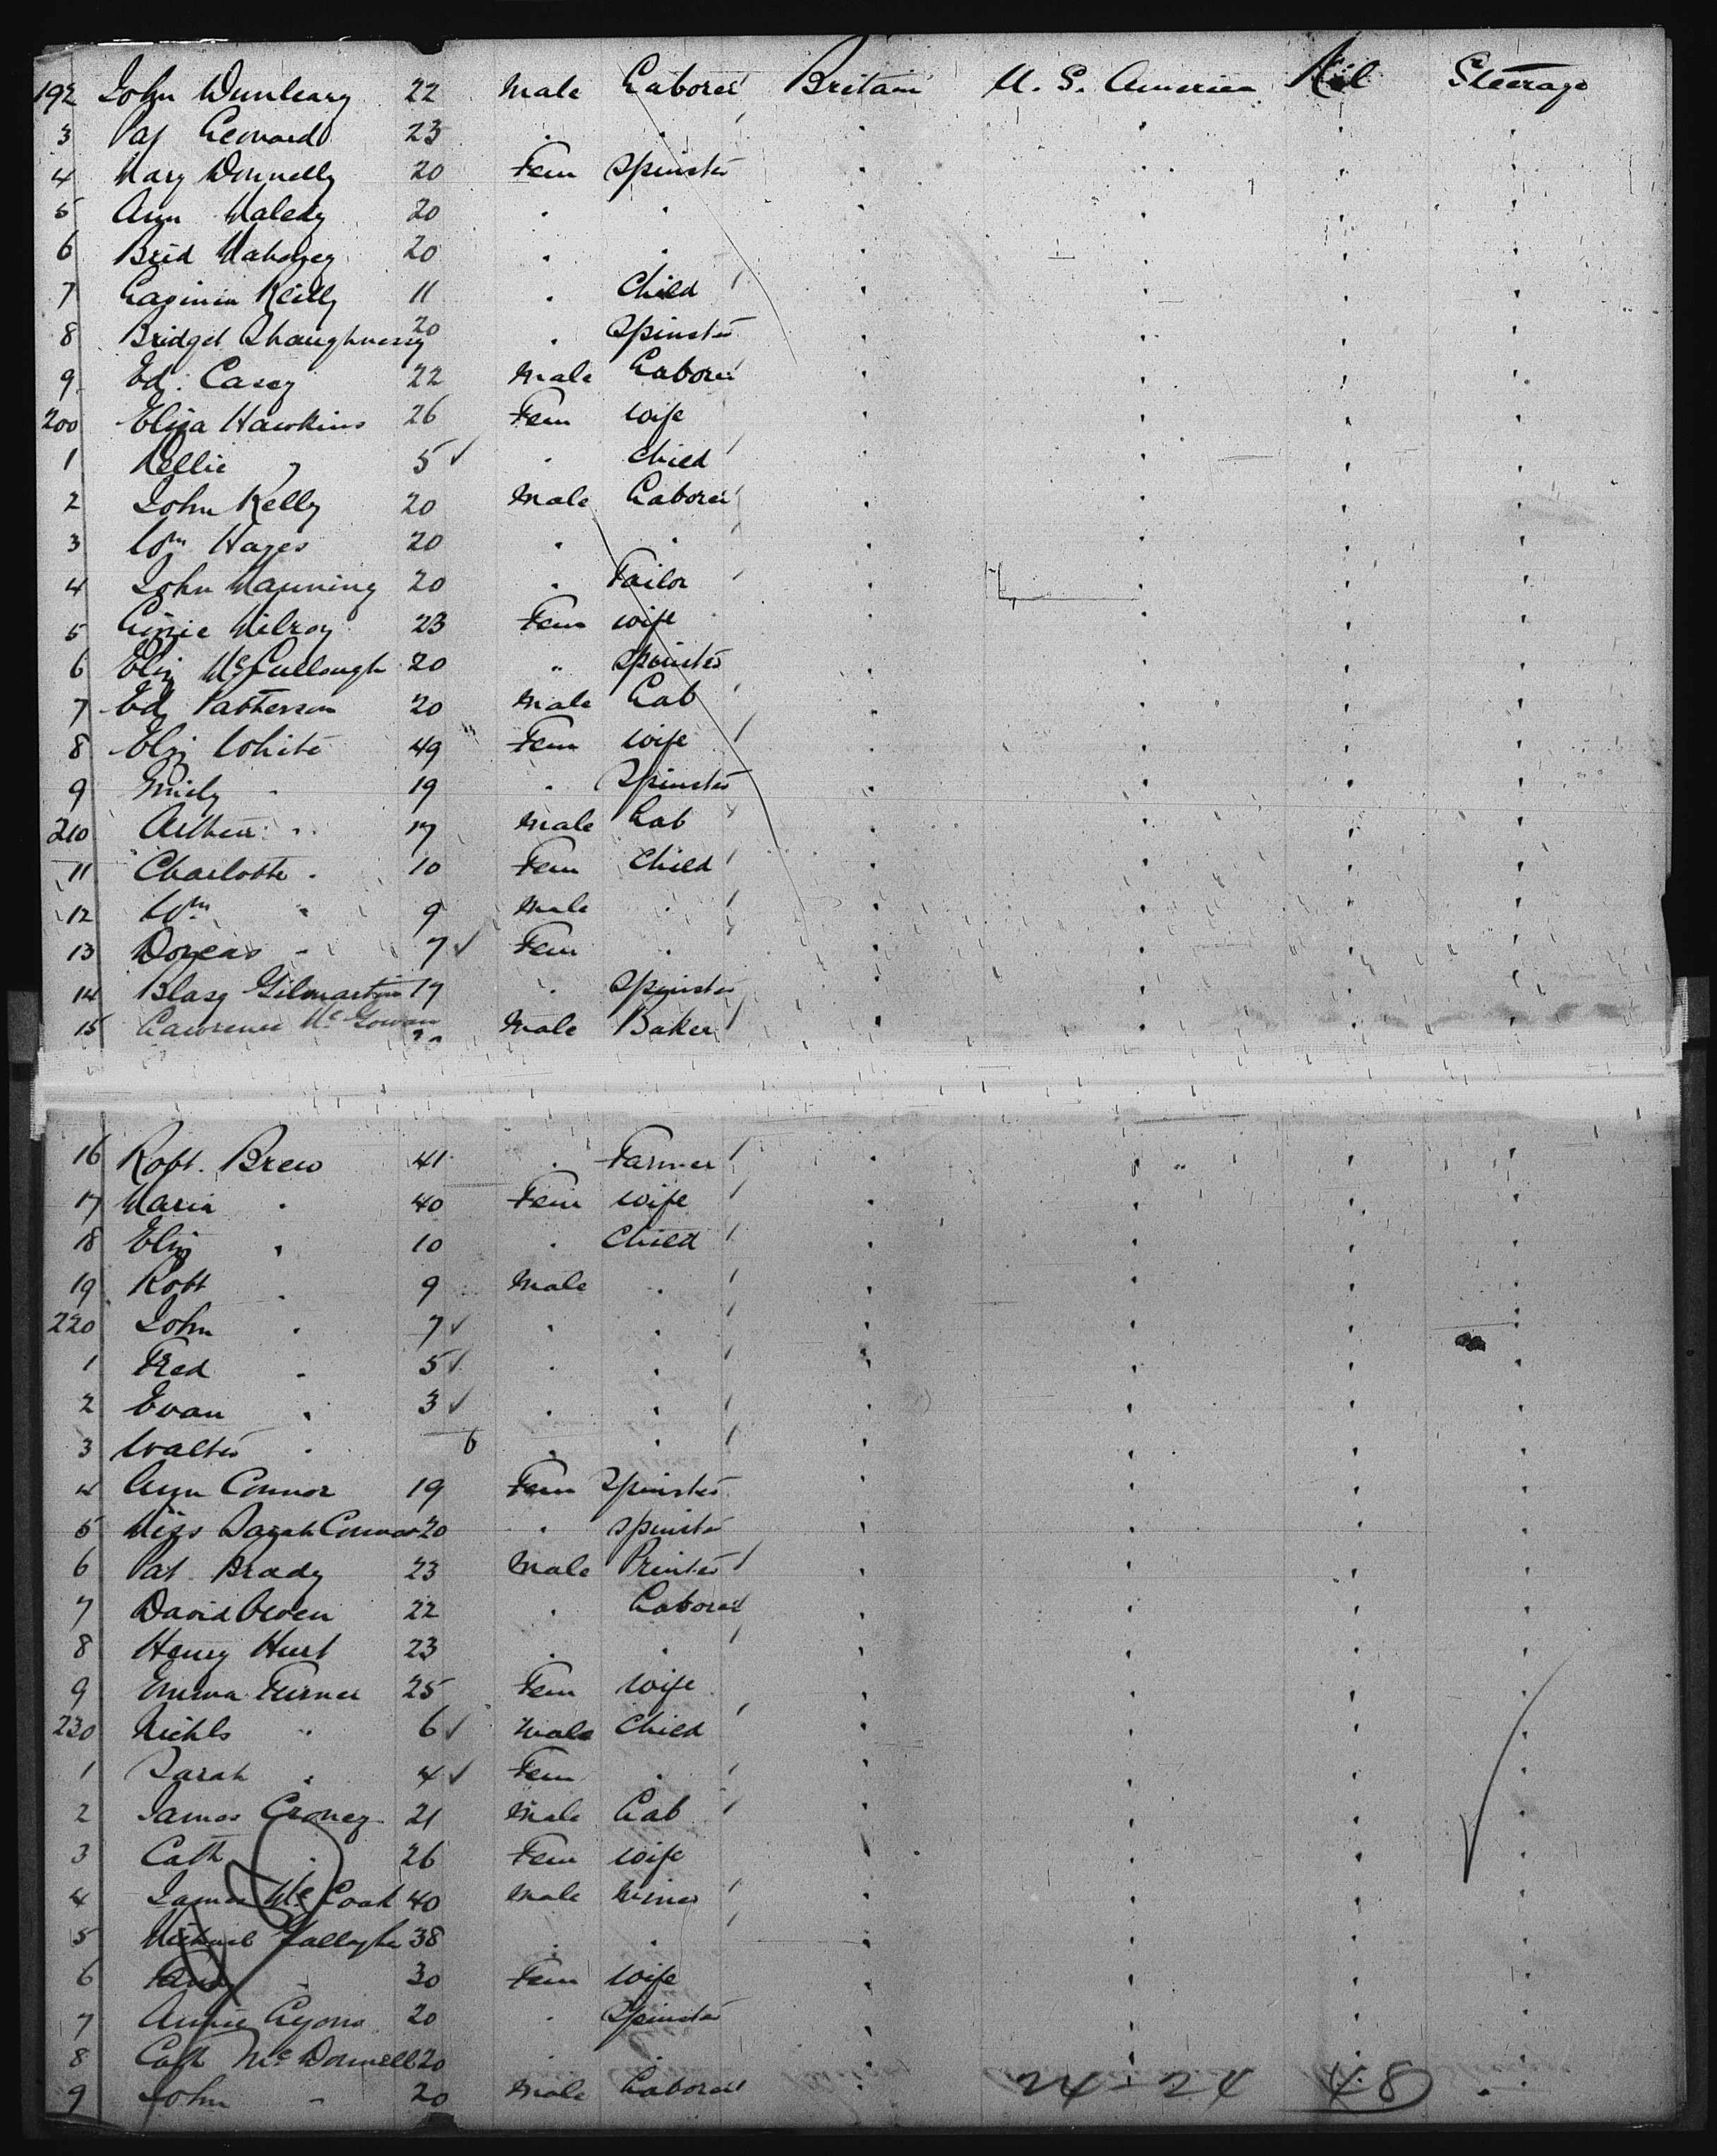 192 John Dunleavy 22 Male Laborer Britain U. S. America Nil Steerage
3 Pat Leonard 23 . .
4 Mary Donnelly 20 Fem Spinster
5 Ann 20 . .
6 Brid Mahoney 20 . .
7 Reilly 11 . Child
8 Bridget Shaughnessy 20 . Spinster
9 Ed. Casey 22 Male Laborer
200 Eliza Hawkins 26 Fem Wife
1 Nellie " 5 ✓ . Child
2 John Kelly 20 Male Laborer
3 Wm Hayes 20 . .
4 John Manning 20 . Tailor
5 Milroy 23 Fem Wife
6 Eliz McCullough 20 " Spinster
7 Ed Patterson 20 Male Lab
8 Eliz White 49 Fem Wife
9 Emily " 19 . Spinster
210 Arthur " 17 Male Lab
11 Charlotte " 10 Fem Child
12 Wm " 9 Male .
13 Dorcas " 7 ✓ Fem .
14 Gilmartin 19 . Spinster
15 Lawrence McGowan 20 Male Baker
16 Robt. Brew 41 . Farmer
17 Maria . 40 Fem Wife
18 Eliz . 10 . Child
19 Robt . 9 Male .
220 John . 7 ✓ . .
1 Fred . 5 ✓ . .
2 Evan . 3 ✓ . .
3 Walter . 6 . .
4 Ann Connor 19 Fem Spinster
5 Miss Sarah Connor 20 . Spinster
6 Pat Brady 23 Male Printer
7 David Owen 22 . Laborer
8 Henry Hurt 23 . .
9 Emma Turner 25 Fem Wife
230 Nichls " 6 ✓ Male Child
1 Sarah . 4 ✓ Fem .
2 James Croney 21 Male Lab
3 Cath . 26 Fem Wife
4 James Mc 40 Male Miner
5 Michael Gallagher 38 . .
6 30 Fem Wife
7 Annie Lyons 20 . Spinster
8 Cath McDonnell 20 . .
9 John " 20 Male Laborer
24 - 24 48